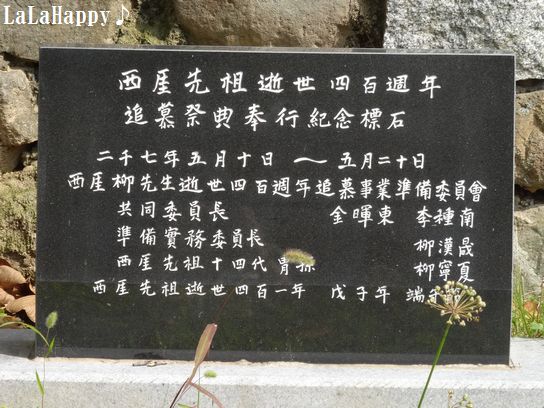 LaLaHappy♪
西厓先祖逝世四百週年
追慕祭典奉行紀念標石
二千七年五月十日 〜 五月二十日
西厓柳先生逝世四百週年追慕事業準備委員會
共同委員長 金暉東 李種南
準備實務委員長 柳漢晟
西厓先祖十四代胄孫 柳寧夏
西厓先祖逝世四百一年 戊子年 端